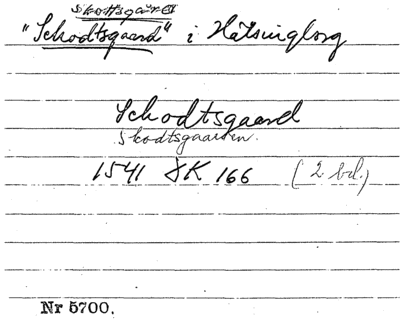 Skottsgården
"Schodtsgaard" i Hälsingborg
Schodtsgaard
Skodtsgaarden.
1541 SK 166 (2 bd.)
Nr 5700.